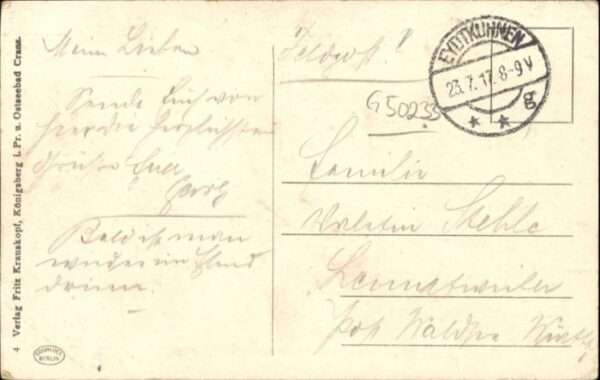 4 Verlag Fritz Krauskopf, Königsberg i. Pr. u. Ostseebad Cranz.
Meine Lieben
Sende Euch von
hier die herzlichsten
Grüße Euer
Bald ist man
wieder im Elend
drinn.
Feldpost!
EYDTKUHNEN
23.7.17. 8-9 V
* * g
G50235
Familie
Valentin Stehle
Post Waldsee Württ.
BERLIN